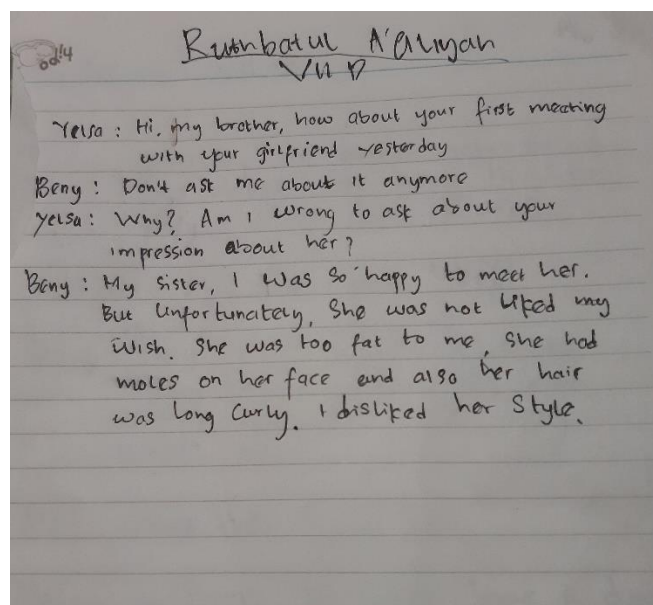 Ruthbatul A'aliyah
VII D
Yeisa : Hi, my brother, how about your first meeting
with your girlfriend yesterday
Beny : Don't ask me about it anymore
Yeisa : Why? Am I wrong to ask about your
impression about her?
Beny : My sister, I was so happy to meet her.
But Unfortunately, She was not Liked my
wish. She was too fat to me, she had
moles on her face and also her hair
was Long Curly. I disliked her Style.